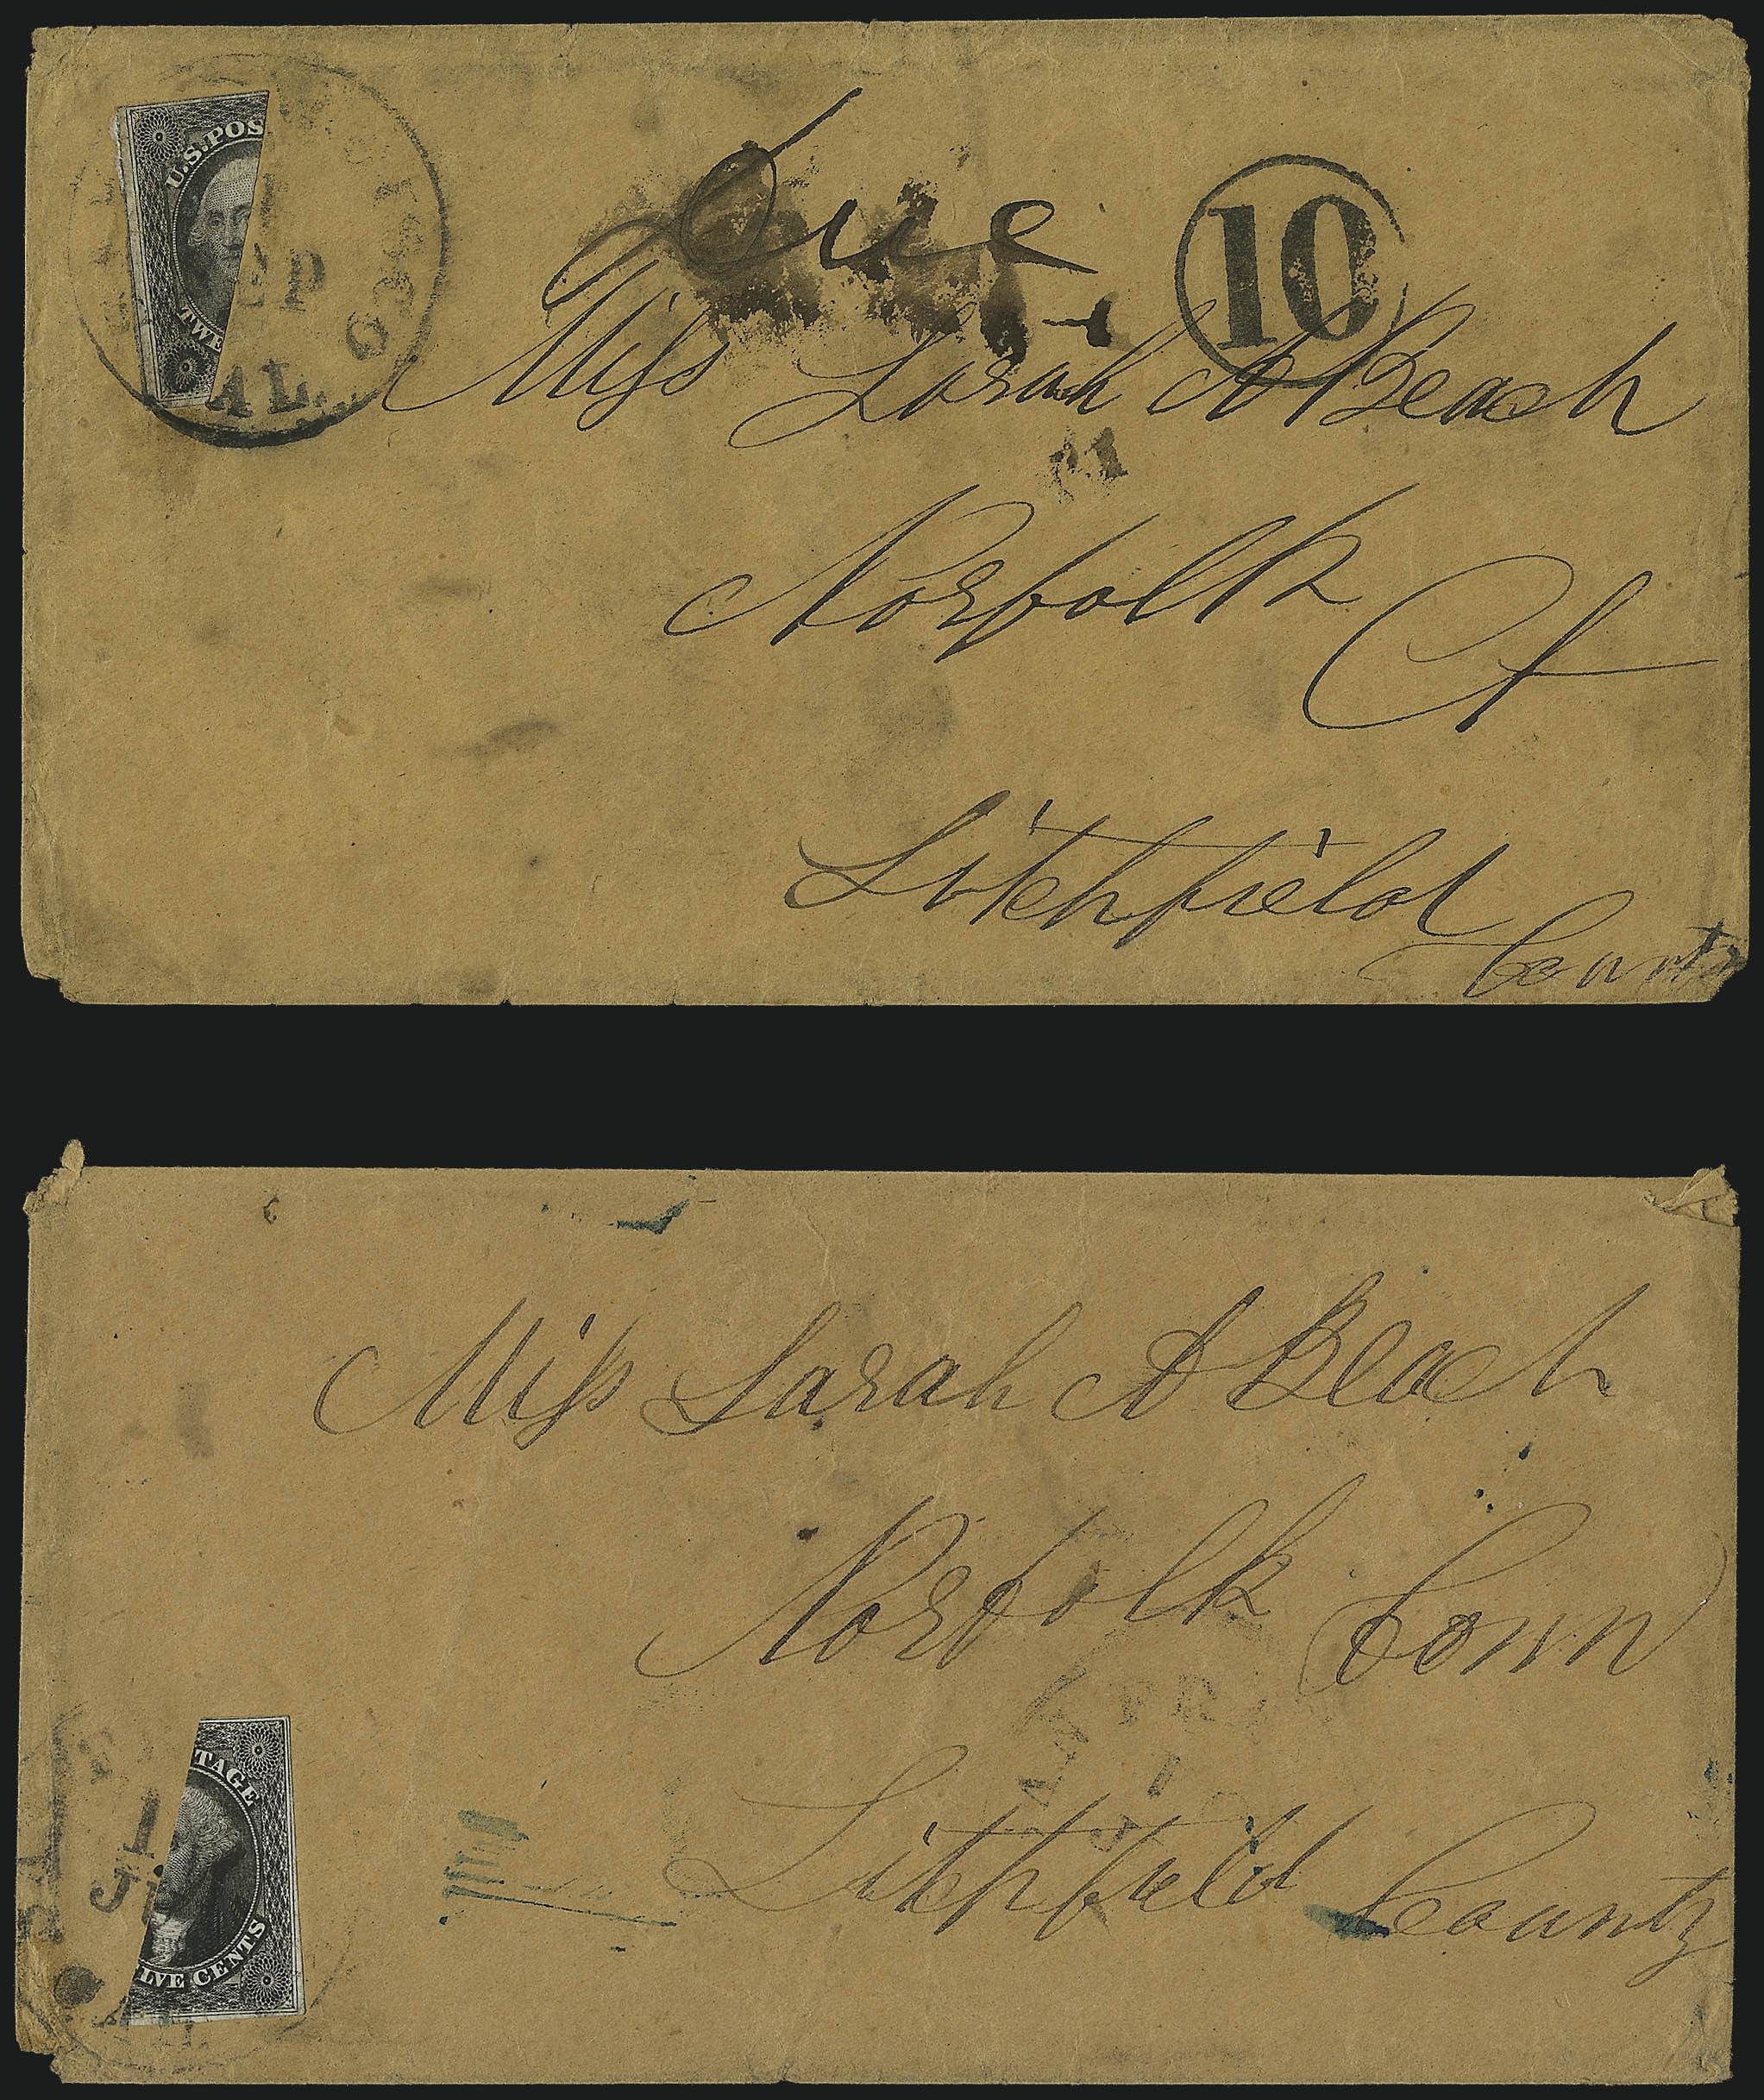 U.S.POS
TWE
AL.
Due
10
Miss Sarah A Beach
Norfolk Ct
Litchfield
County
Miss Sarah A Beach
Norfolk Conn
Litchfield County
TAGE
LVE CENTS
1